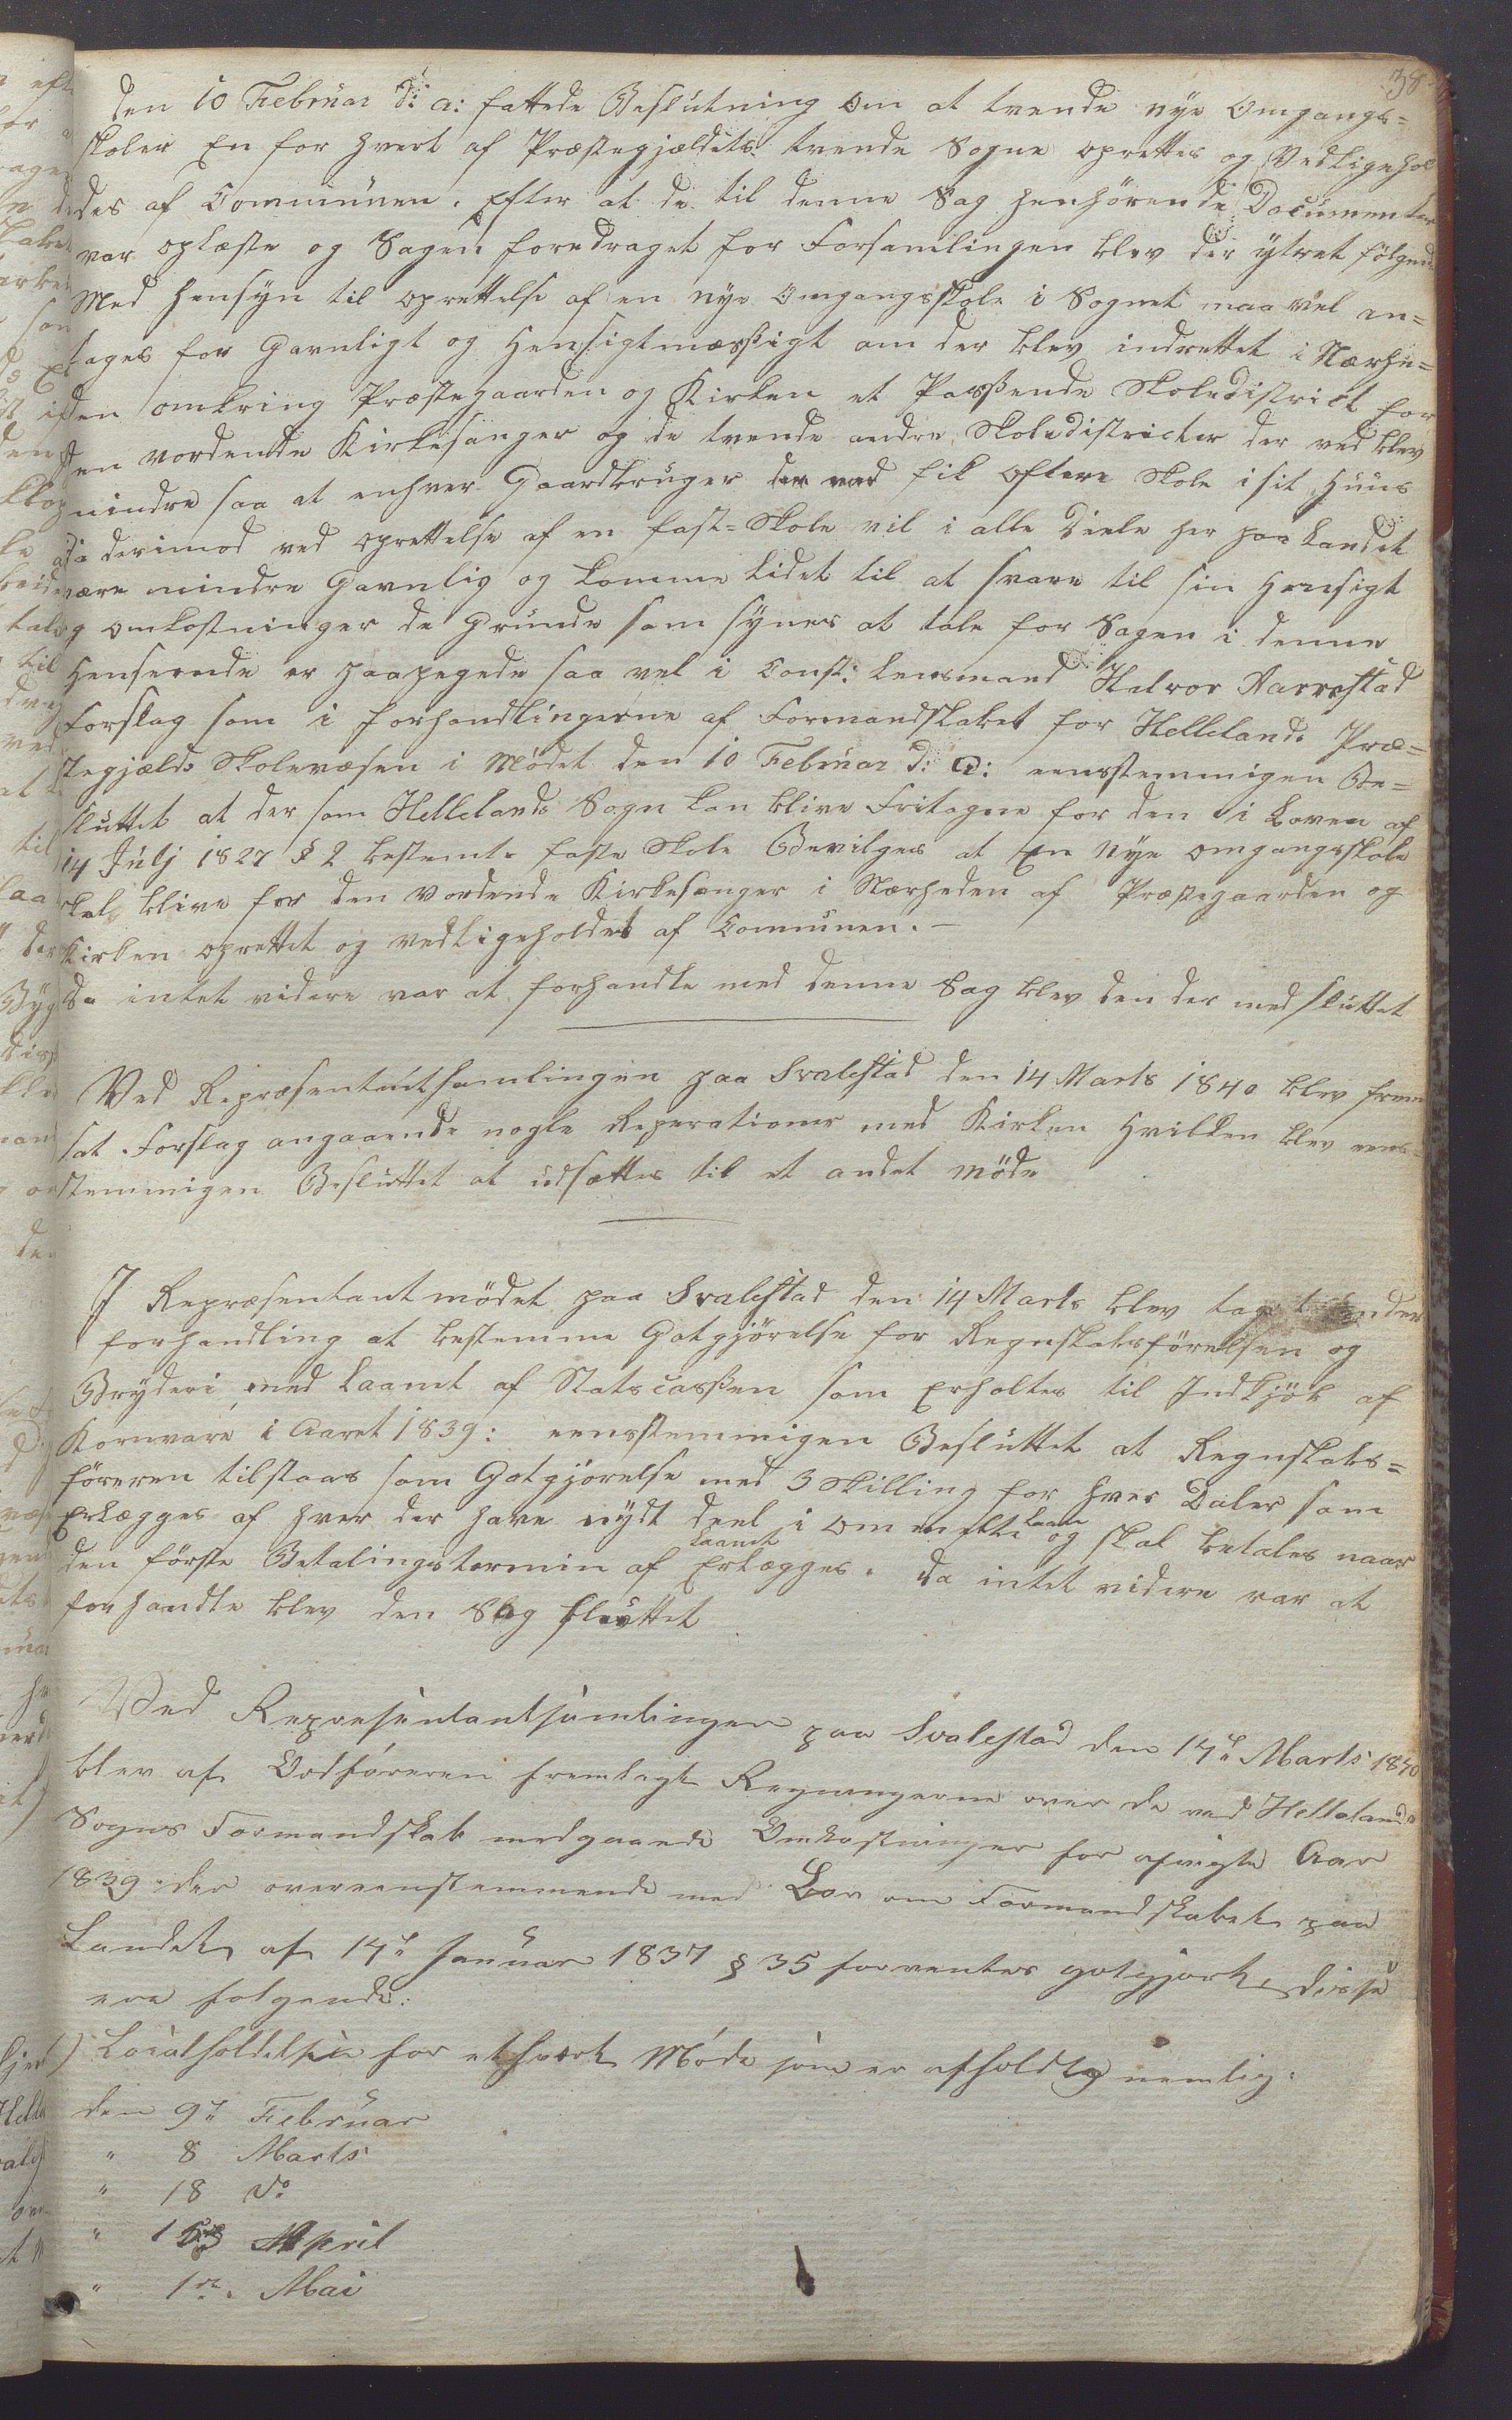 38
den 10 Februar d: a: fattede Beslutning om at tvende nye Omgangs=
skoler En for hvert af Præstegjældets tvende Sogne oprettes og Vedligehol
des af Communen. Efter at de til denne Sag henhörende Documenter
var oplæste og Sagen foredraget for Forsamlingen blev der ytret fölgende
Med hensyn til oprettelse af en nye Omgangsskole i Sognet maa vel an=
tages for Gavnligt og Hensigtmæssigt om der blev indrettet i Nærhe=
den omkring Præstegaarden og Kirken et Passende Skoledistrict for
den vordende Kirkesanger og de tvende andre Skoledistricter der ved blev
mindre saa at enhver Gaardbruger der ved fik oftere Skole i sit Huus
da derimod ved oprettelse af en fast=Skole vil i alle Deele her paa Landet
være mindre Gavnlig og komme lidet til at svare til sin Hensigt
og omkostninger de Grunde som synes at tale for Sagen i denne
Henseende er paapegede saa vel i Const: Lensmand Halvor Aarrestad
Forslag som i forhandlingerne af Formandskabet for Hellelands Præ=
stegjælds Skolevæsen i Mödet den 10 Februar d: A: eensstemmigen Be=
sluttet at der som Hellelands Sogn kan blive Fritagne for den i Loven af
14 Julj 1827 § 2 bestemte faste Skole Bevilges at En nye omgangsskole
skal blive for den vordende Kirkesanger i Nærheden af Præstegaarden og
Kirken oprettet og vedligeholdet af Communen.-
Da intet videre var at forhandle med denne Sag blev den der med sluttet
Ved Repræsentantsamlingen paa Svalestad den 14 Marts 1840 blev frem
sat Forslag angaaende nogle Reperationer med Kirken Hvilken blev eens=
stemmigen Besluttet at udsættes til et andet möde
I Repræsentantmödet paa Svalestad den 14 Marts blev taget under
forhandling at bestemme Gotgjörelse for Regnskabsförelsen og
Bryderi med Laanet af Statscassen som Erholtes til Indkjöb af
Kornvare i Aaret 1839: eensstemmigen Besluttet at Regnskabs=
föreren tilstaas som Gotgjörelse med 3 Skilling for hver Daler som
Erlægges af hver der have nydt deel i Ommeldte Laan og skal betales naar
den förste Betalingstermin af Laanet Erlægges. da intet videre var at
forhandle blev den Sag sluttet
Ved Representantsamlingen paa Svalestad den 14de Marts 1840
blev af Ordföreren fremlagt Regningerne over de ved Hellelands
Sogns Formandskab medgaaende Omkostninger for afvigte Aar
1839 der overeenstemmende med Lov om Formandskabet paa
Landet af 14de Januar 1837 § 35 forventes godgjort, disse
ere folgende:
1) Localholdelsen for ethvert Möde som er afholdt nemlig:
den 9de Februar
" 8 Marts
" 18 do
" April
" 1te Mai